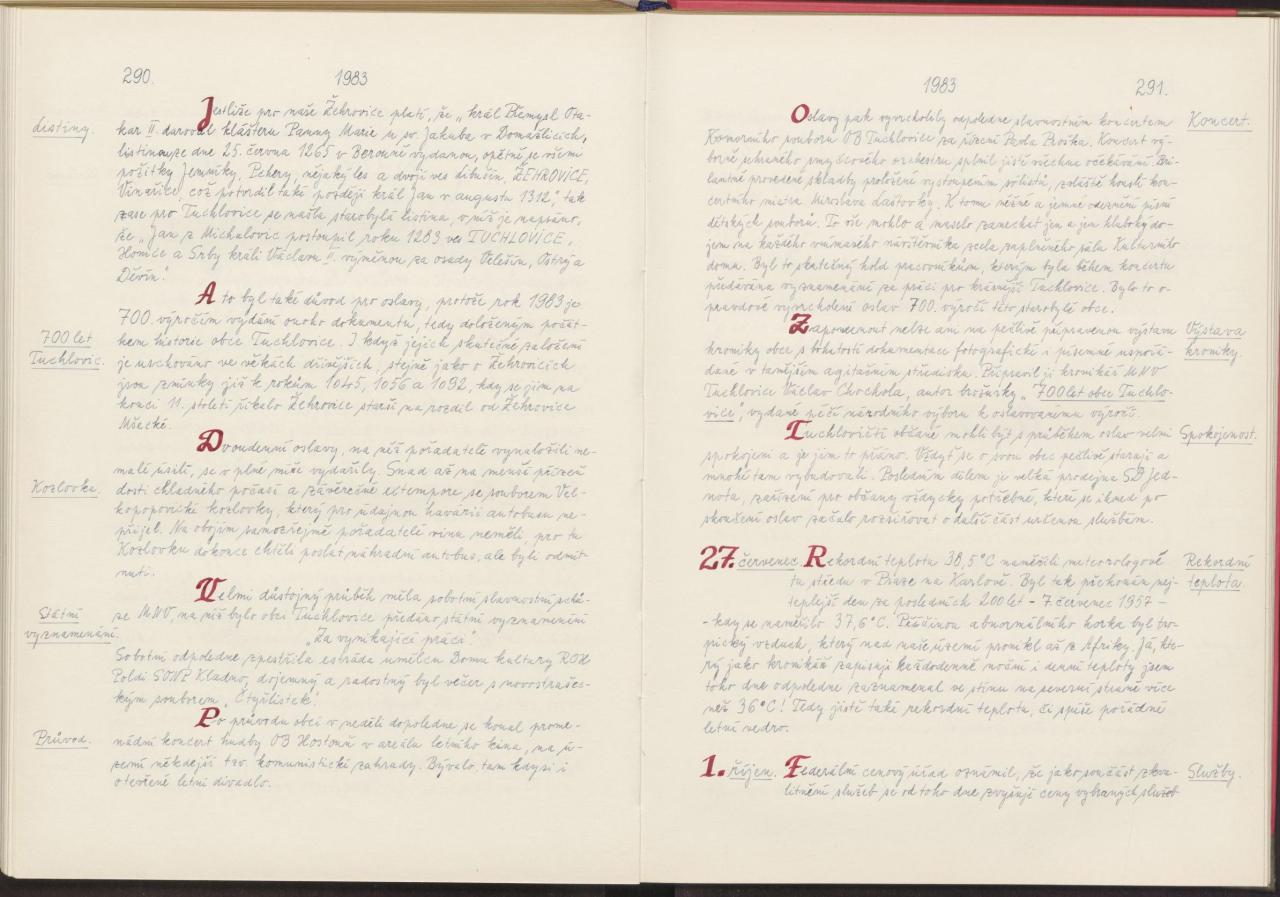 290.
1983
Jestliže pro naše Žehrovice platí, že „král Přemysl Ota-
listiny.
kar II. daroval klášteru Panny Marie u sv. Jakuba v Domažlicích,
listinou ze dne 25. června 1265 v Berouně vydanou, opětně se všemi
požitky Jemníky, Pchery, nějaký les a dvojí ves Libušín, ŽEHROVICE,
Vinařice, což potvrdil také později král Jan v augustu 1312“, tak
zase pro Tuchlovice se našla starobylá listina, v níž je napsáno,
že „Jan z Michalovic postoupil roku 1283 ves TUCHLOVICE,
Honice a Srby králi Václavu II. výměnou za osady Velešín, Ostrý a
Děvín“.
A to byl také důvod pro oslavy, protože rok 1983 je
700. výročím vydání onoho dokumentu, tedy doloženým počát-
700 let
kem historie obce Tuchlovice. I když jejich skutečné založení
Tuchlovic.
je uschováno ve věkách dřívějších, stejně jako o Žehrovicích
jsou zmínky již k rokům 1045, 1056 a 1092, kdy se jim na
konci 11. století říkalo Žehrovice starší na rozdíl od Žehrovice
Mšecké.
Dvoudenní oslavy, na něž pořadatelé vynaložili ne-
malé úsilí, se v plné míře vydařily. Snad až na menší přízeň
Kozlovka.
dosti chladného počasí a závěrečné extempore se souborem Vel-
kopopovické kozlovky, který pro údajnou havárii autobusu ne-
přijel. Na obojím samozřejmě pořadatelé vinu neměli, pro tu
Kozlovku dokonce chtěli poslat náhradní autobus, ale byli odmít-
nuti.
Velmi důstojný průběh měla sobotní slavnostní schů-
Státní
ze MNV, na níž bylo obci Tuchlovice předáno státní vyznamenání
vyznamenání.
„Za vynikající práci“.
Sobotní odpoledne zpestřila estráda umělců Domu kultury ROH
Poldi SONP Kladno, dojemný a radostný byl večer s novostrašec-
kým souborem „Čtyřlístek“.
Po průvodu obcí v neděli dopoledne se konal prome-
Průvod.
nádní koncert hudby OB Hostouň v areálu letního kina, na ú-
zemí někdejší tzv. komunistické zahrady. Bývalo tam kdysi i
otevřené letní divadlo.
1983
291.
Oslavy pak vyvrcholily odpoledne slavnostním koncertem
Koncert.
Komorního souboru OB Tuchlovice za řízení Pavla Proška. Koncert vý-
borně sehraného smyčcového orchestru splnil jistě všechna očekávání. Bri-
lantně provedené skladby proložené vystoupením sólistů, zvláště houslí kon-
certního mistra Miroslava Lástovky. K tomu něžné a jemné odeznění písní
dětských souborů. To vše mohlo a muselo zanechat jen a jen hluboký do-
jem na každého vnímavého návštěvníka zcela zaplněného sálu Kulturního
domu. Byl to skutečný hold pracovníkům, kterým byla během koncertu
předávána vyznamenání za práci pro krásnější Tuchlovice. Bylo to o-
pravdové vyvrcholení oslav 700. výročí této starobylé obce.
Zapomenout nelze ani na pečlivě připravenou výstavu
Výstava
kroniky obce s bohatostí dokumentace fotografické i písemné uspořá-
kroniky.
dané v tamějším agitačním středisku. Připravil ji kronikář MNV
Tuchlovice Václav Chochola, autor brožurky „700 let obce Tuchlo-
vice“, vydané péčí národního výboru k oslavovanému výročí.
Tuchlovičtí občané mohli být s průběhem oslav velmi
Spokojenost.
spokojeni a je jim to přáno. Vždyť se o svou obec pečlivě starají a
mnohé tam vybudovali. Posledním dílem je velká prodejna SD Jed-
nota, zařízení pro občany vždycky potřebné, které se ihned po
skončení oslav začalo rozšiřovat o další část určenou službám.
27. červenec. Rekordní teplotu 38,5°C naměřili meteorologové
Rekordní
tu středu v Praze na Karlově. Byl tak překonán nej-
teplota.
teplejší den za posledních 200 let - 7. červenec 1957 -
- kdy se naměřilo 37,6°C. Příčinou abnormálního horka byl tro-
pický vzduch, který nad naše území pronikl až z Afriky. Já, kte-
rý jako kronikář zapisuji každodenně noční i denní teploty jsem
toho dne odpoledne zaznamenal ve stínu na severní straně více
než 36°C! Tedy jistě také rekordní teplotu, či spíše pořádné
letní vedro.
1. říjen. Federální cenový úřad oznámil, že jako součást zkva-
Služby.
litnění služeb se od toho dne zvyšují ceny vybraných služeb